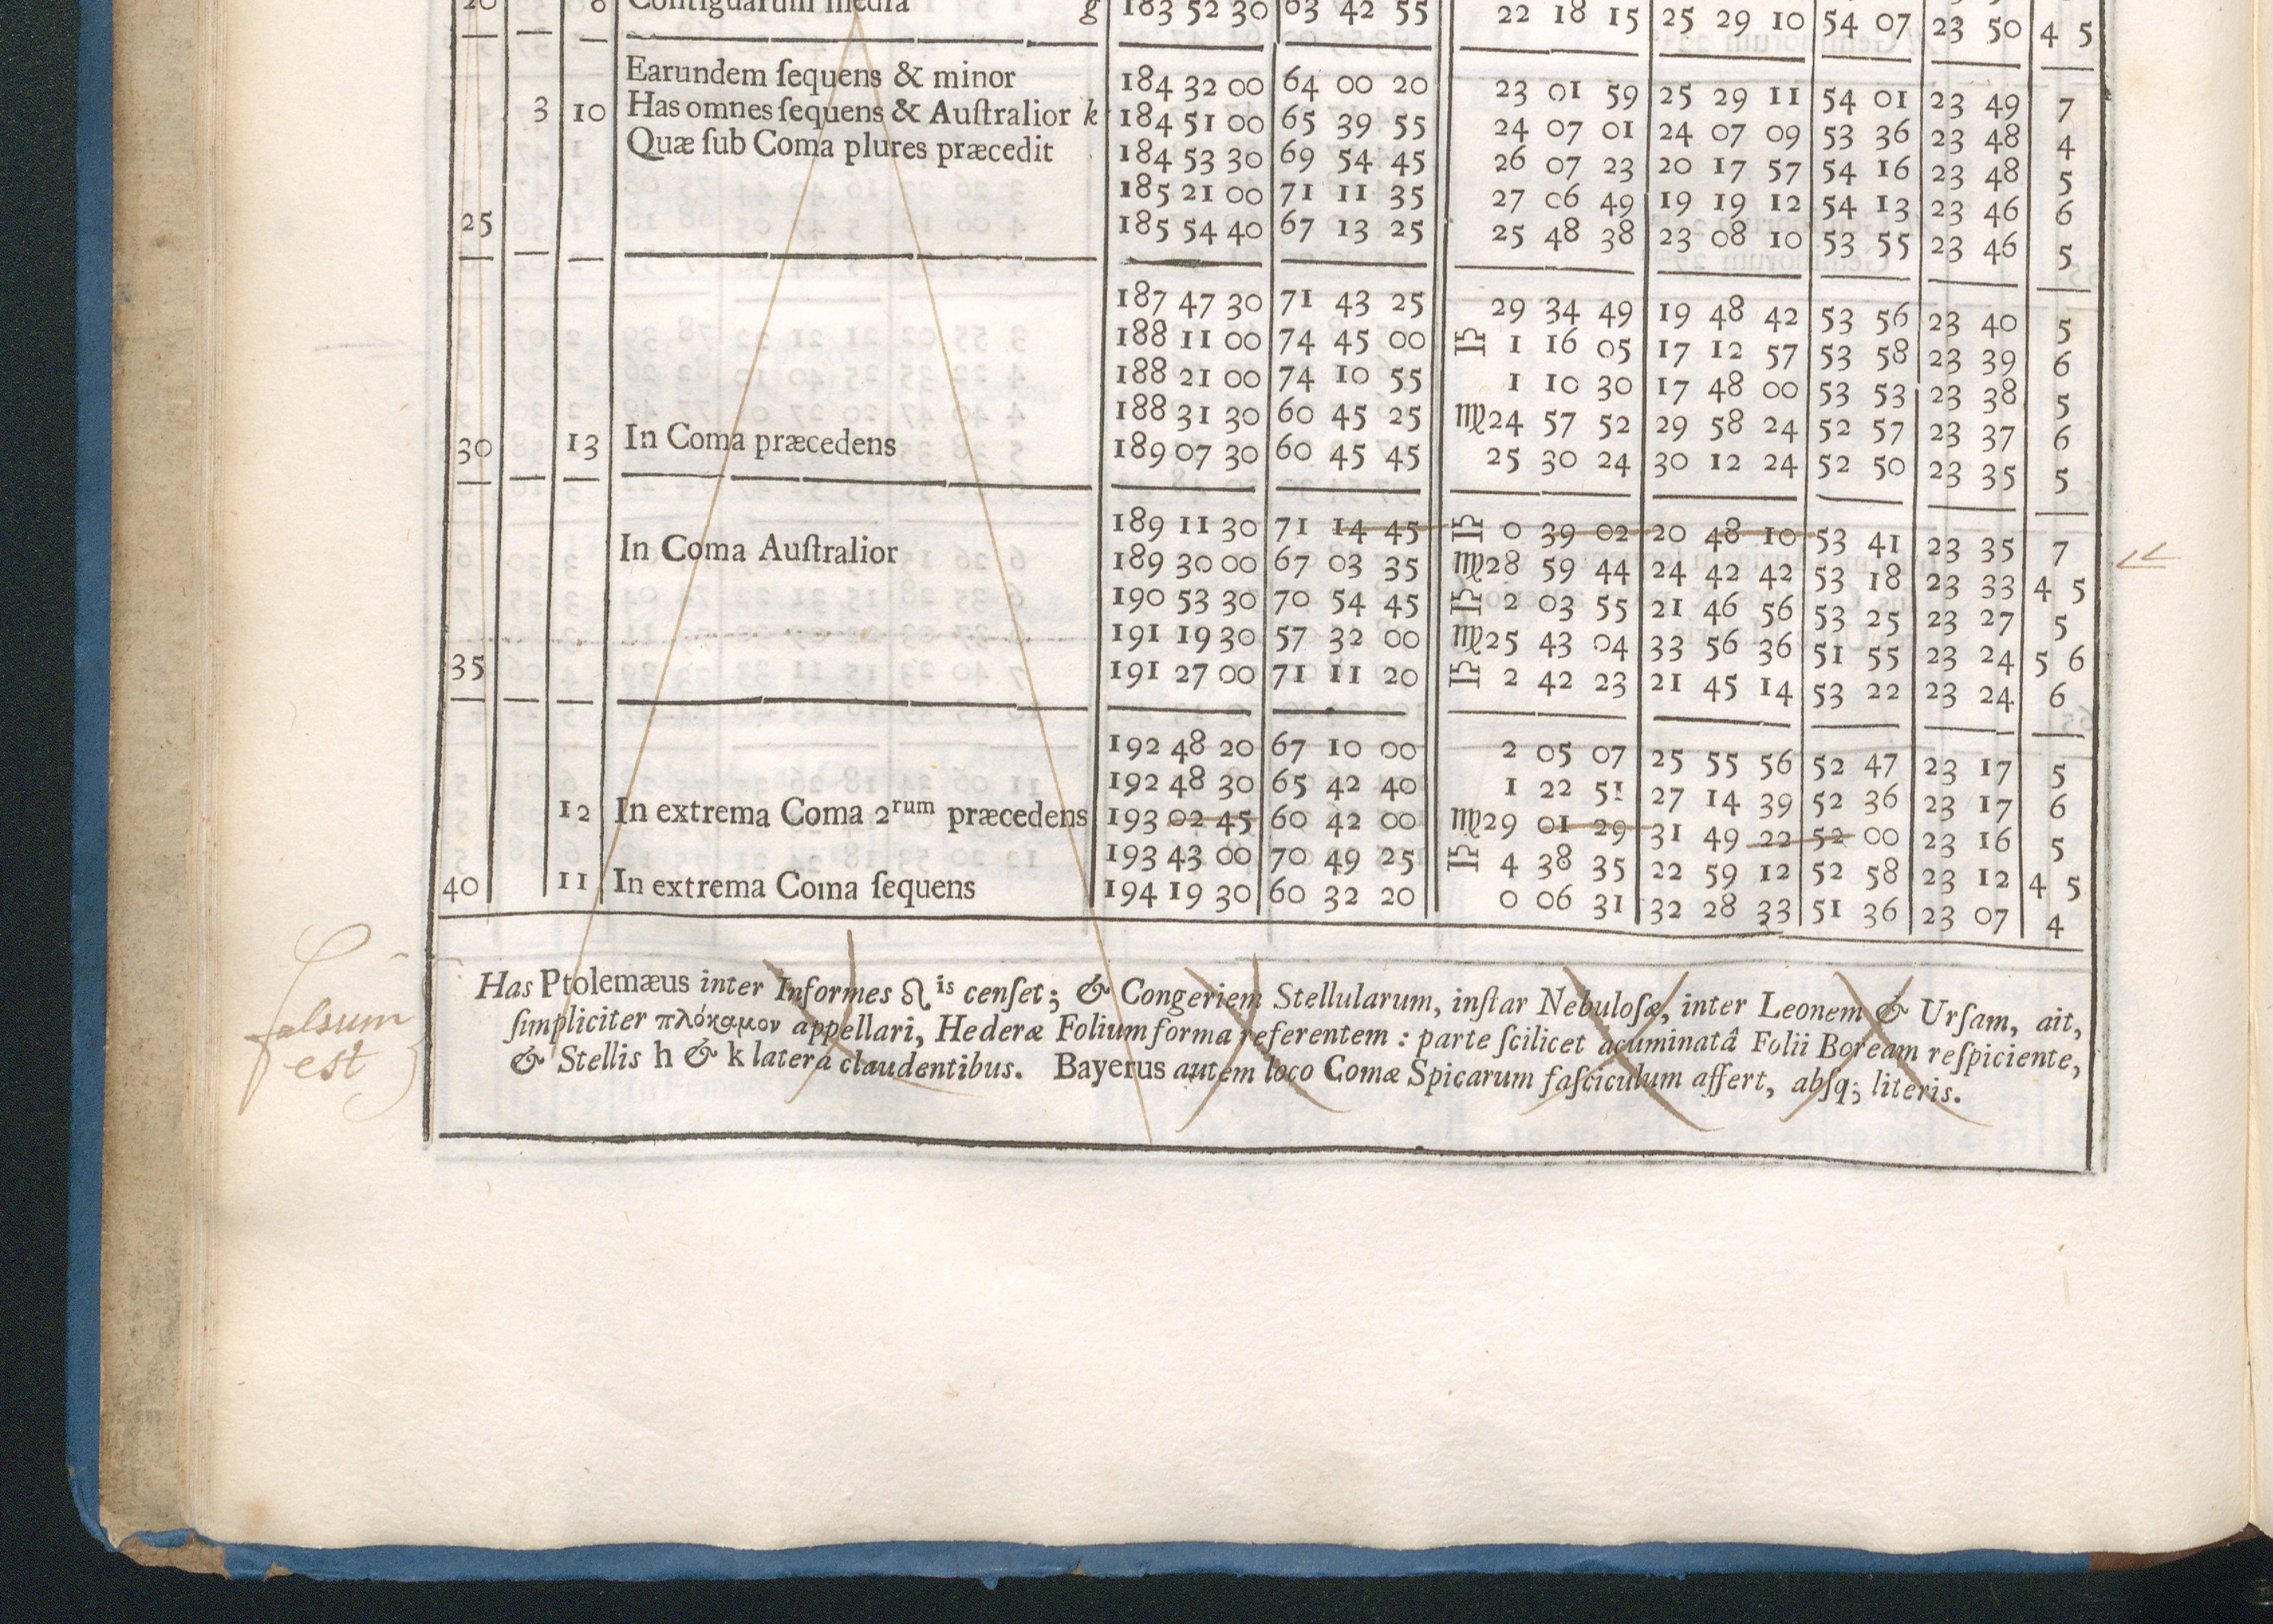 20 8 Contiguarum media g 183 52 30 63 42 55 22 18 15 25 29 10 54 07 23 50 4 5
Earundem ſequens & minor 184 32 00 64 00 20 23 01 59 25 29 11 54 01 23 49 7
3 10 Has omnes ſequens & Auſtralior k 184 51 00 65 39 55 24 07 01 24 07 09 53 36 23 48 4
Quæ ſub Coma plures præcedit 184 53 30 69 54 45 26 07 23 20 17 57 54 16 23 48 5
185 21 00 71 11 35 27 06 49 19 19 12 54 13 23 46 6
25 185 54 40 67 13 25 25 48 38 23 08 10 53 55 23 46 5
187 47 30 71 43 25 29 34 49 19 48 42 53 56 23 40 5
188 11 00 74 45 00 ♎ 1 16 05 17 12 57 53 58 23 39 6
188 21 00 74 10 55 1 10 30 17 48 00 53 53 23 38 5
188 31 30 60 45 25 ♍ 24 57 52 29 58 24 52 57 23 37 6
30 13 In Coma præcedens 189 07 30 60 45 45 25 30 24 30 12 24 52 50 23 35 5
189 11 30 71 14 45 ♎ 0 39 02 20 48 10 53 41 23 35 7
In Coma Auſtralior 189 30 00 67 03 35 ♍ 28 59 44 24 42 42 53 18 23 33 4 5
190 53 30 70 54 45 ♎ 2 03 55 21 46 56 53 25 23 27 5
191 19 30 57 32 00 ♍ 25 43 04 33 56 36 51 55 23 24 5 6
35 191 27 00 71 11 20 ♎ 2 42 23 21 45 14 53 22 23 24 6
192 48 20 67 10 00 2 05 07 25 55 56 52 47 23 17 5
192 48 30 65 42 40 1 22 51 27 14 39 52 36 23 17 6
12 In extrema Coma 2rum præcedens 193 02 45 60 42 00 ♍ 29 01 29 31 49 22 52 00 23 16 5
193 43 00 70 49 25 ♎ 4 38 35 22 59 12 52 58 23 12 4 5
40 11 In extrema Coma ſequens 194 19 30 60 32 20 0 06 31 32 28 33 51 36 23 07 4
Has Ptolemæus inter Informes ♌is cenſet; & Congeriem Stellularum, inſtar Nebuloſæ, inter Leonem & Urſam, ait,
ſimpliciter πλόκαμον appellari, Hederæ Folium forma referentem : parte ſcilicet acuminatâ Folii Boream reſpiciente,
& Stellis h & k latera claudentibus. Bayerus autem loco Comæ Spicarum faſciculum affert, abſq; literis.
falsum
est